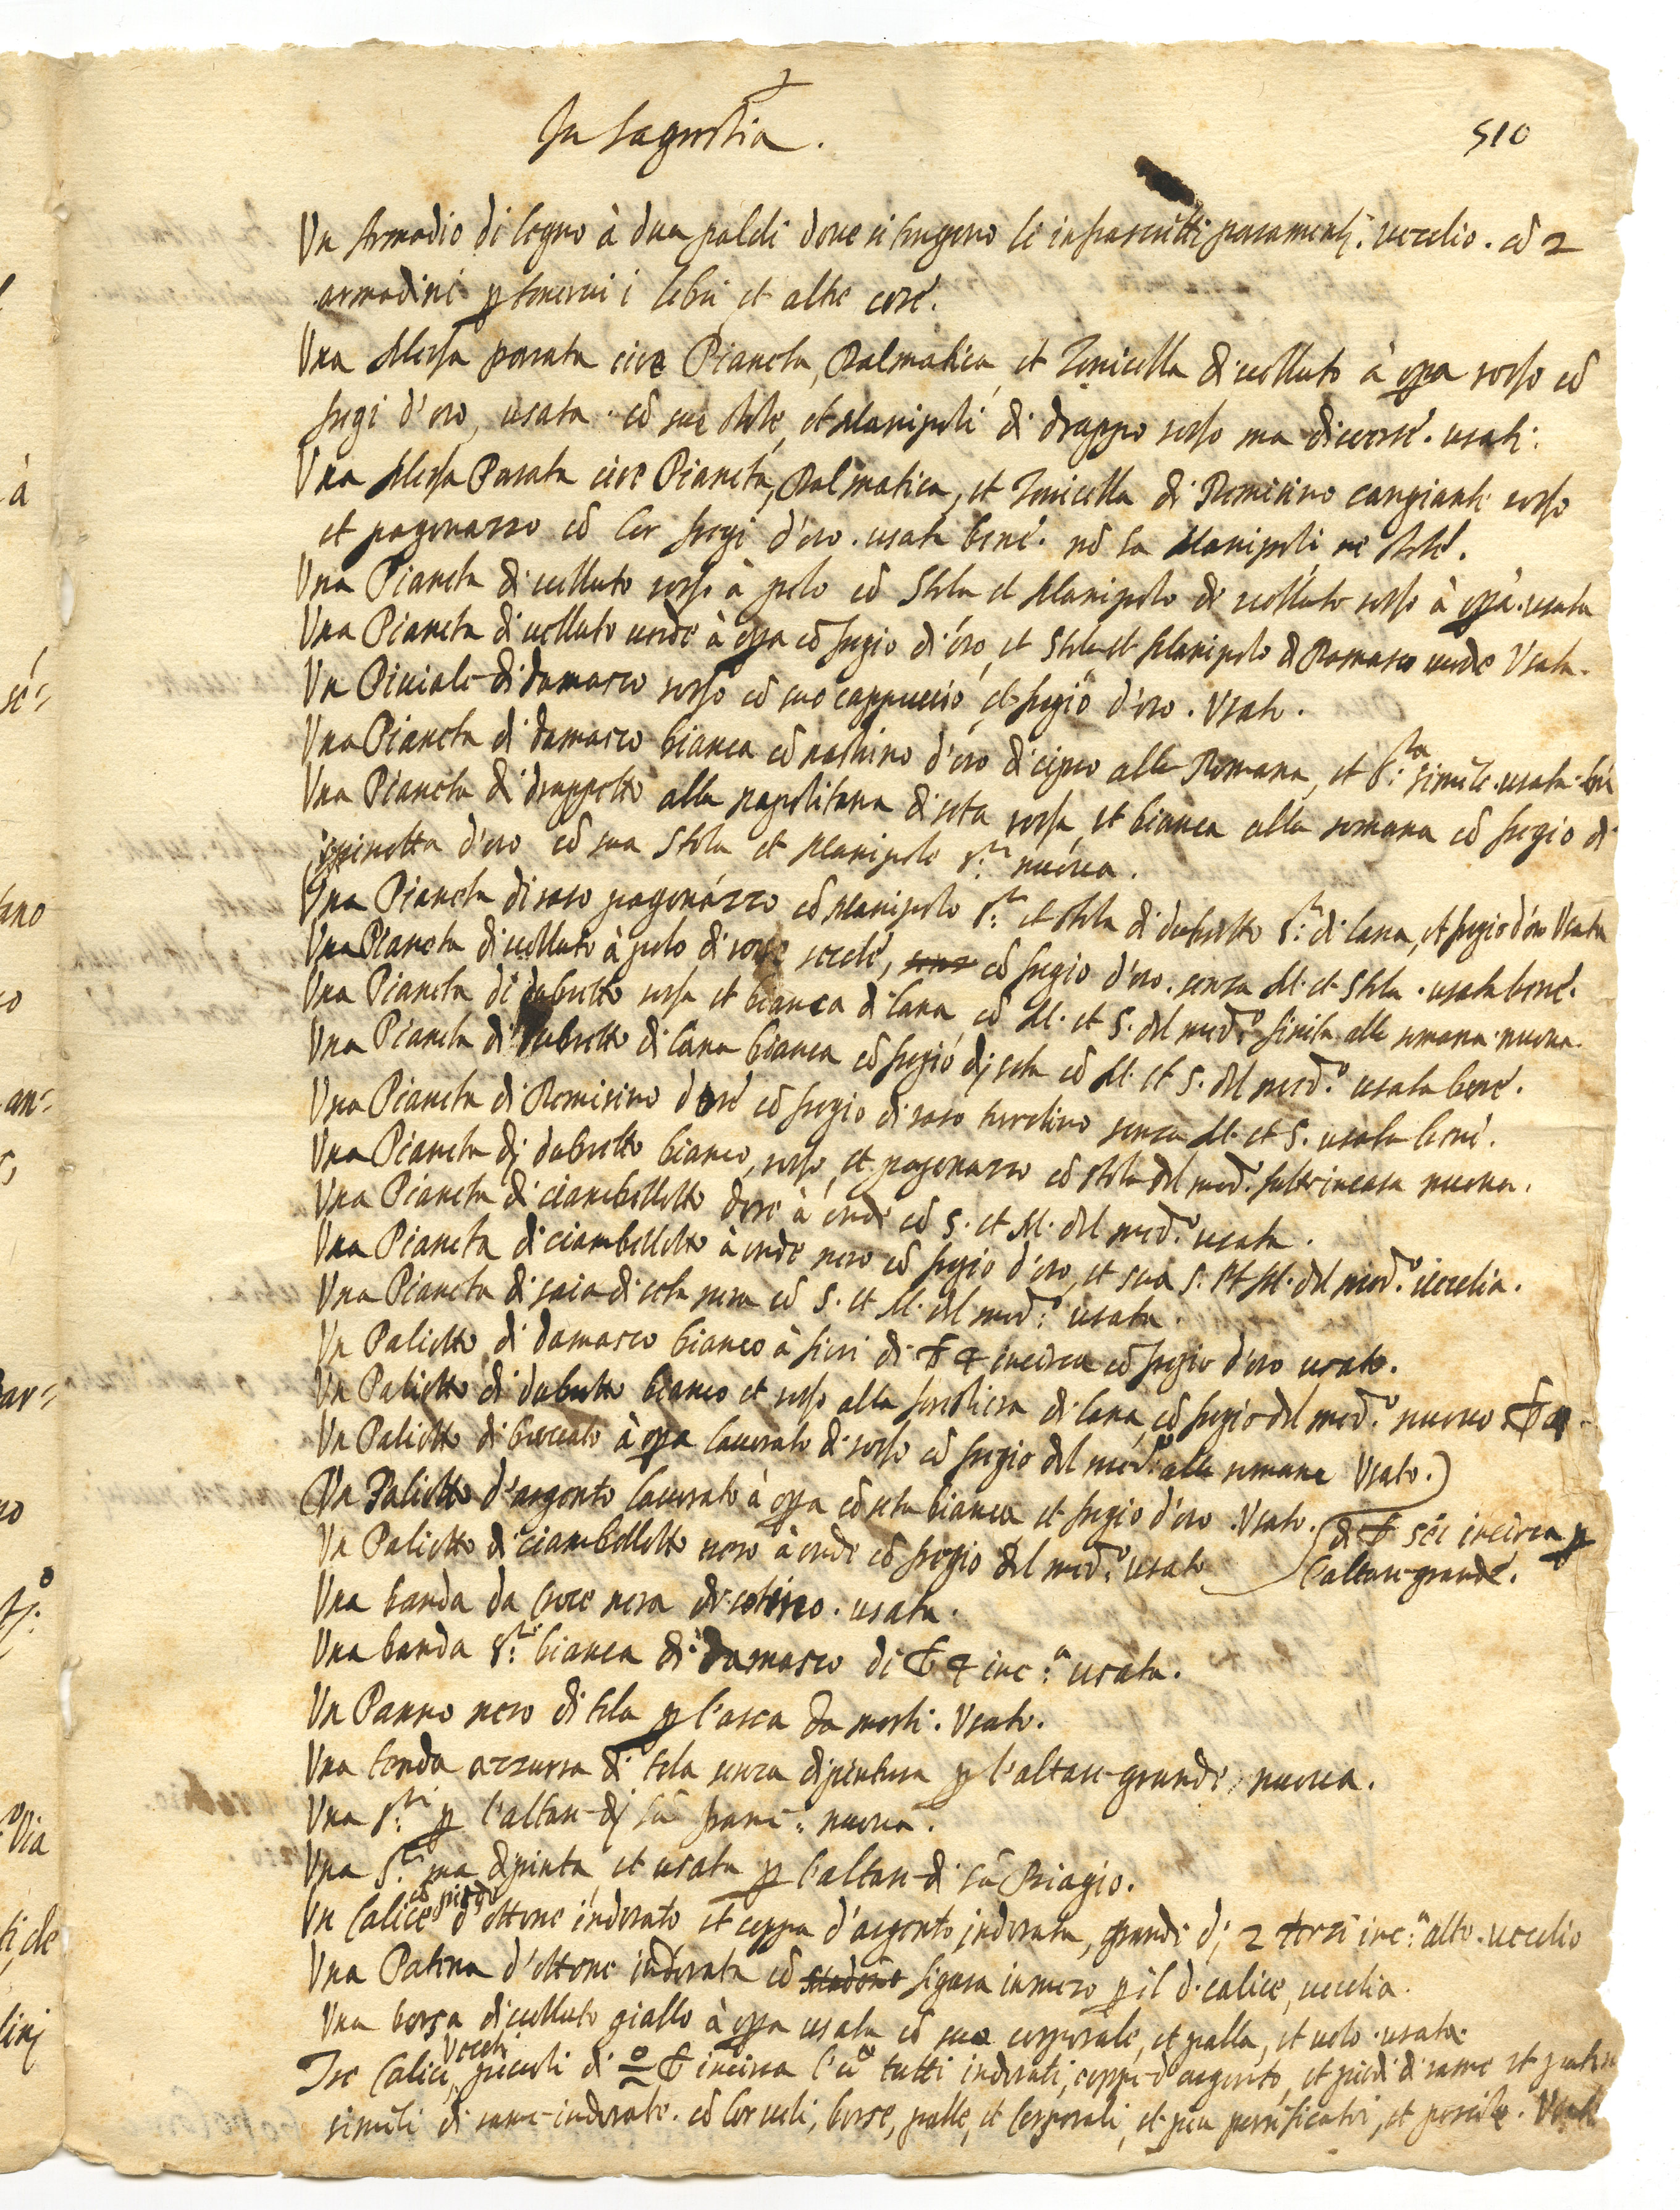 In Sagrestia.
510
Un Armadio di legno à dua palchi dove si tengono le infrascritti paramenti. vecchio. cō 2
armadini p tenervi i libri et altre cose.
Una Messa parata cioe Pianeta, Dalmatica, et Tonicella di velluto à opa rosso cō
fregi d'oro, usata. cō sue stole, et Manipoli di drappo rosso ma diverse. usati.
Una Messa Parata cioe Pianeta, Dalmatica, et Tonicella di Ormisino cangiante rosso
et pagonazzo cō lor fregi d'oro. usata bene. nō ha Manipoli ne stole.
Una Pianeta di velluto rosso à pelo cō Stola et Manipolo di velluto rosso à opa. usata
Una Pianeta di velluto verde à opa cō fregio d'oro, et Stola et Manipolo di Damasco verde Usata.
Un Piviale di damasco rosso cō suo cappuccio et fregio d'oro. Usato.
Una Pianeta di damasco bianca cō nastrino d'oro di cipro alla Romana, et S.la simile. usata
Una Pianeta di drappetto alla napolitana di seta rossa, et bianca alla romana cō fregio di
spinetta d'oro cō sua Stola et Manipolo s.li nuova.
Una Pianeta di raso pagonazzo cō Manipolo s.le et stola di dobretto s.le di lana, et fregio d'oro Usata
Una Pianeta di velluto à pelo di rose secche, cō fregio d'oro. senza M. et Stola. usata bene.
Una Pianeta di dobretto rossa et bianca di lana cō M. et S. del med.o finita alla romana. nuova.
Una Pianeta di dobretto di lana bianca cō fregio di seta cō M. et S. del med.o usata bene.
Una Pianeta di Ormisino dorè cō fregio di raso turchino senza M. et S. usata bene.
Una Pianeta di dobretto bianco, rosso, et pagonazzo cō stola del med.o fatto in casa nuova.
Una Pianeta di ciambellotto dorè à onde cō S. et M. del med.o usata.
Una Pianeta di ciambellotto à onde nero cō fregio d'oro, et sua S. et M. del med.o vecchia.
Una Pianeta di saia di seta nera cō S. et M. del med.o usata.
Un Paliotto di damasco bianco à fiori di 4 incirca cō fregio d'oro usato.
Un Paliotto di dobretto bianco et rosso alla di lana, cō fregio del med.o nuovo
Un Paliotto di broccato à opa lavorato di rosso cō fregio del med.o alla romana Usato.
Un Paliotto d'argento lavorato à opa cō seta bianca et fregio d'oro. Usato.
Un Paliotto di ciambellotto nero à onde cō fregio del med.o usato
di sei incirca p
l'altare grande.
Una banda da Croce nera di usata.
Una banda s.le bianca di damasco di 4 inc.a usata.
Un Panno nero di tela p l'arca da morti. Usato.
Una tenda azzurra di tela senza dipintura p l'altare grande, nuova.
Una s.le p l'altare di Sā Franc.o nuova.
Una s.le ma dipinta et usata p l'altare di Sā Biagio.
cō piede
Un Calice d'ottone indorato et coppa d'argento indorata, grande di 2 terzi inc.a alto. vecchio
Una Patena d'ottone indorata cō figura in mezo p il d. calice, vecchia.
Una borsa di velluto giallo à opa usata cō suo corporale, et palla, et velo. usate
vecchi
Tre Calici, piccoli di incirca l'ū tutti indorati, coppe d'argento, et piedi di rame et patene
simili di rame indorate. cō lor veli, borse, palle, et Corporali, et piu purificatoi, et pezzuole.